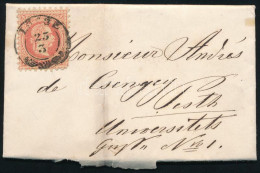 25
3
Monsieur Andrés
de Csengey
Pesth
Universitets
Nº 1.